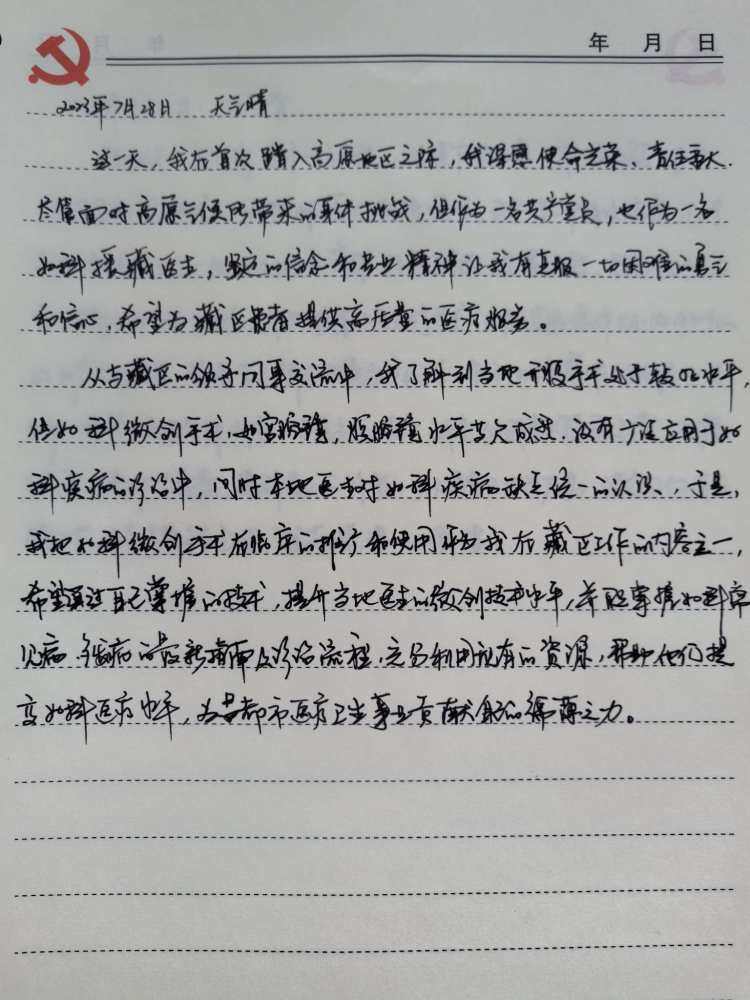 年 月 日
2023年7月28日 天气晴
这一天，我在首次踏入高原地区之际，我深感使命光荣、责任重大.
尽管面对高原气候所带来的身体挑战，但作为一名共产党员，也作为一名
妇科援藏医生，坚定的信念和专业精神让我有克服一切困难的勇气
和信心，希望为藏区患者提供高质量的医疗服务。
从与藏区的领导同事交流中，我了解到当地开腹手术处于较好水平，
但妇科微创手术，如宫腔镜，腹腔镜水平尚欠成熟，没有广泛应用于妇
科疾病的诊治中，同时本地医生对妇科疾病缺乏统一的认识，于是，
我把妇科微创手术在临床的推广和使用列为我在藏区工作的内容之一，
希望通过自己掌握的技术，提升当地医生的微创技术水平，并能掌握妇科常
见病、多发病的最新指南及诊治流程，充分利用现有的资源，帮助他们提
高妇科医疗水平，为昌都市医疗卫生事业贡献自己的绵薄之力。